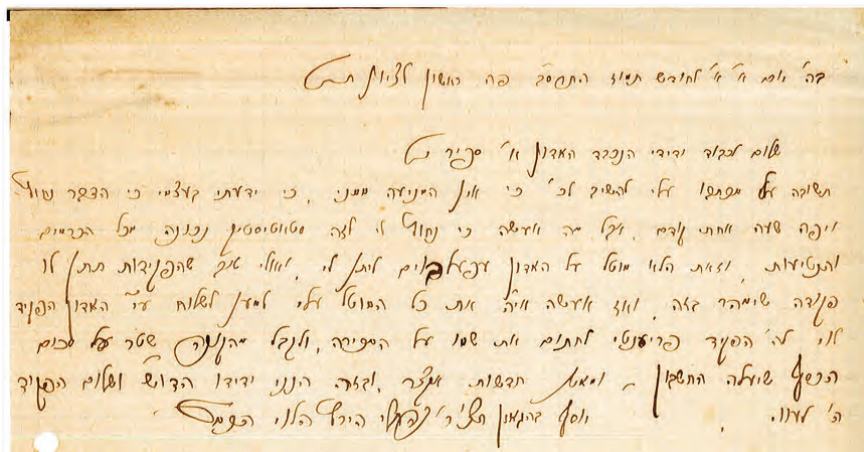 בה' יום א' א' לחודש תמוז התרסב פה ראשון לציון ת"ו
שלום לכבוד ידידי הנכבד האדון א' ספיר נ"י
תשובה על מכתבו עלי להשיב לכ' כי אין המניעה ממני, כי ידעתי בעצמי כי הדבר נחוץ
ויפה שעה אחת קודם, אבל מה אעשה כי נחוץ לי לזה סטטיסטיק נכונה מכל הכרמים
והנטיעות, וזאת הלא מוטל על האדון ליתן לי, ואולי טוב שהפקידות תתן לו
פקודה שימהר בזה, ואז אעשה אי"ה את כל המוטל עלי למען לשלוח ע"י האדון הפקיד
לוי לה' הפקיד פריענטי לחתום את שמו על המכירה, ולקבל מהקונה שטר על סכום
הכסף שיעלה החשבון חדשות אקצר, ובזה הנני ידידו הדו"ש ושלום הפקיד
ה' לעווי. יוסף בהגאון נפתלי הירץ הלוי